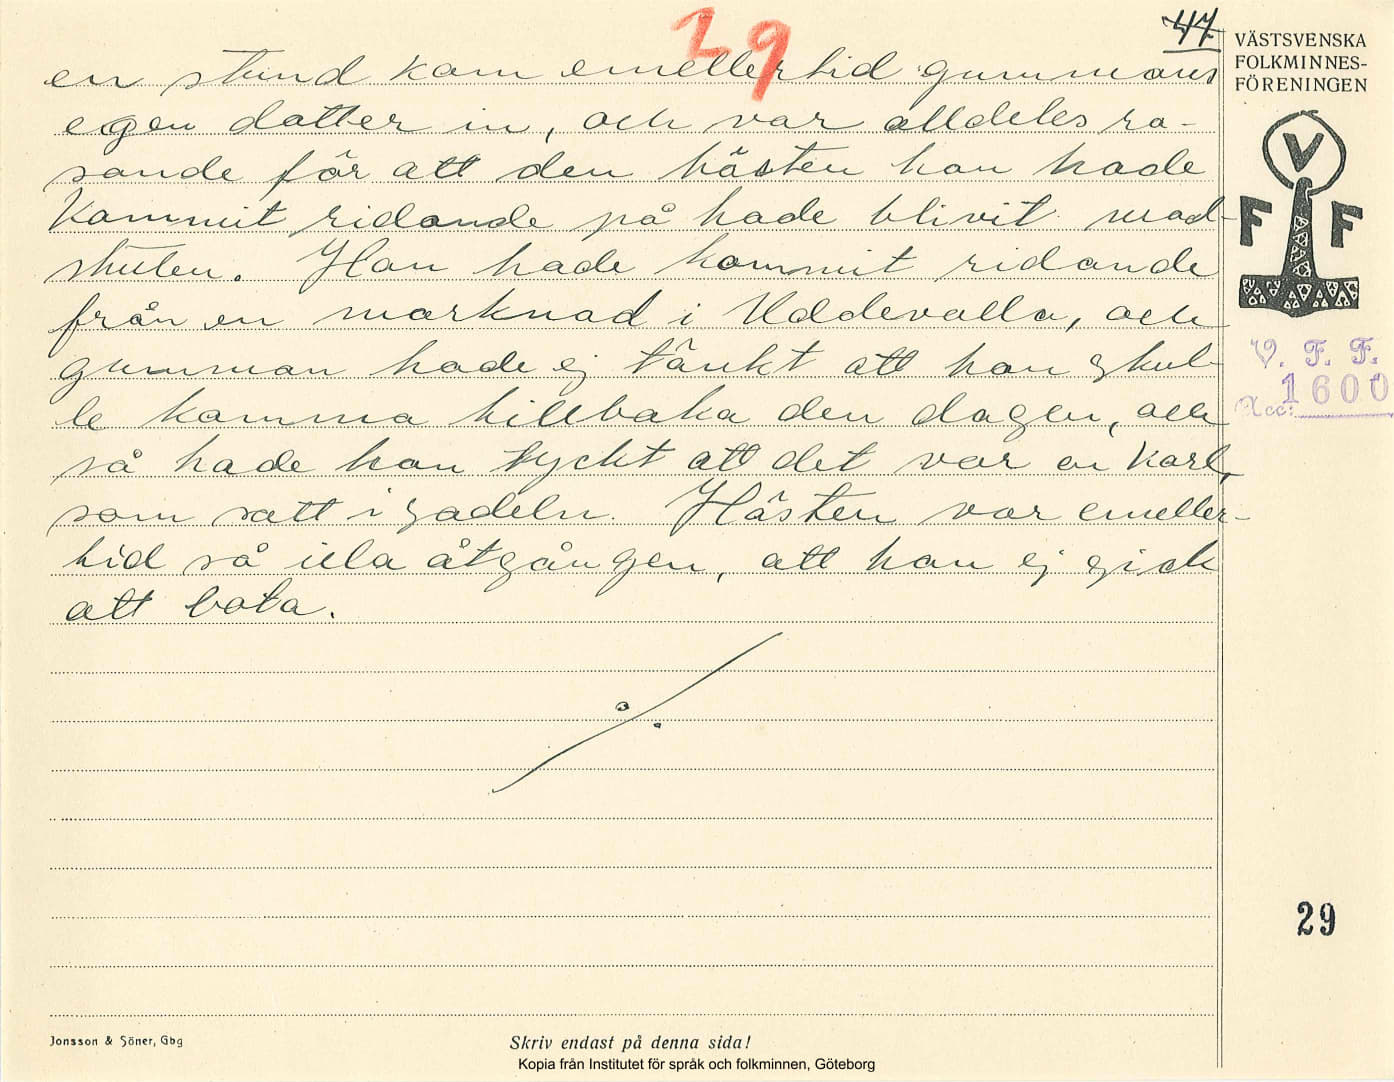 29
47
VÄSTSVENSKA
FOLKMINNES-
FÖRENINGEN
en stund kom emellertid gummans
egen dotter in, och var alldeles ra-
sande för att den hästen hon hade
kommit ridande på hade blivit mod-
stulen. Hon hade kommit ridande
från en marknad i Uddevalla, och
gumman hade ej tänkt att hon skul-
le komma tillbaka den dagen, och
så hade hon tyckt att det var en karl,
som satt i sadeln. Hästen var emeller-
tid så illa åtgången, att han ej gick
att bota.
V
F F
V. F. F.
Acc: 1600
29
Jonsson & Söner, Gbg
Skriv endast på denna sida!
Kopia från Institutet för språk och folkminnen, Göteborg